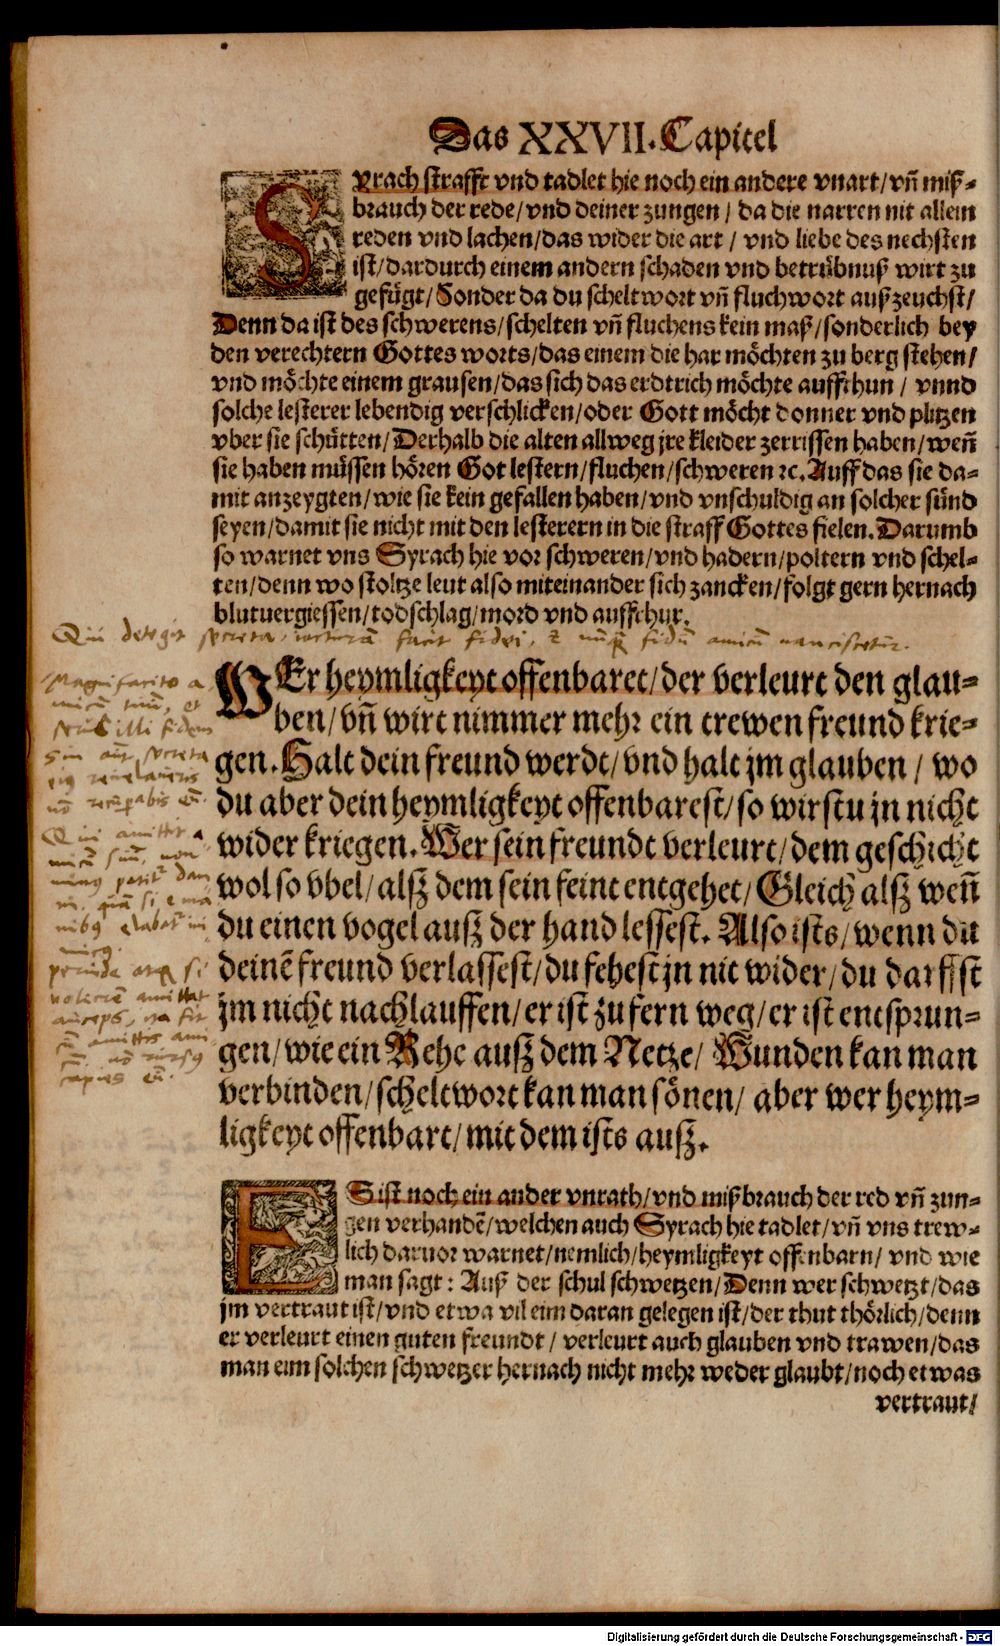 Das XXVII. Capitel
SYrach strafft vnd tadlet hie noch ein andere vnart/ vñ miß-
brauch der rede/ vnd deiner zungen/ da die narren nit allein
reden vnd lachen/ das wider die art/ vnd liebe des nechsten
ist/ dardurch einem andern schaden vnd betrübnuß wirt zu
gefügt/ Sonder da du scheltwort vñ fluchwort außzeuchst/
Denn da ist des schwerens/ schelten vñ fluchens kein maß/ sonderlich bey
den verechtern Gottes worts/ das einem die har möchten zu berg stehen/
vnd möchte einem grausen/ das sich das erdtrich möchte auffthun/ vnnd
solche lesterer lebendig verschlicken/ oder Gott möcht donner vnd plitzen
vber sie schütten/ Derhalb die alten allweg jre kleider zerrissen haben/ weñ
sie haben müssen hören Got lestern/ fluchen/ schweren ꝛc. Auff das sie da-
mit anzeygten/ wie sie kein gefallen haben/ vnd vnschuldig an solcher sünd
seyen/ damit sie nicht mit den lesterern in die straff Gottes fielen. Darumb
so warnet vns Syrach hie vor schweren/ vnd hadern/ poltern vnd schel-
ten/ denn wo stoltze leut also miteinander sich zancken/ folgt gern hernach
blutuergiessen/ todschlag/ mord vnd auffrhur.
Qui detegit secreta, iacturã facit fidei, & nũꝗ̃ fidũ amicũ nanciscetur.
WEr heymligkeyt offenbaret/ der verleurt den glau-
ben/ vñ wirt nimmer mehr ein trewen freund krie-
gen. Halt dein freund werdt/ vnd halt jm glauben/ wo
du aber dein heymligkeyt offenbarest/ so wirstu jn nicht
wider kriegen. Wer sein freundt verleurt/ dem geschicht
wol so vbel/ alsz dem sein feint entgehet/ Gleich alsz weñ
du einen vogel ausz der hand lessest. Also ists/ wenn du
deinẽ freund verlassest/ du fehest jn nit wider/ du darffst
jm nicht nachlauffen/ er ist zu fern weg/ er ist entsprun-
gen/ wie ein Rehe ausz dem Netze/ Wunden kan man
verbinden/ scheltwort kan man sönen/ aber wer heym-
ligkeyt offenbart/ mit dem ists ausz.
Magnifacito a
micũ tuũ, et
illi fidem
Sin aũt secreta
eiꝰ revelaueris
nõ recuꝑabis eũ.
Qui amittit a
micũ suũ, non
minꝰ patit̃ dam
ni, quã si e ma
nibꝰ elabat̃ ini
micꝰ.
perinde atꝗ si
volucrẽ amittat
auceps, ita sit
cũ amittis ami
cũ. nõ rursus
capies eũ.
ES ist noch ein ander vnrath/ vnd mißbrauch der red vñ zun-
gen verhandẽ/ welchen auch Syrach hie tadlet/ vñ vns trew-
lich daruor warnet/ nemlich/ heymligkeyt offenbarn/ vnd wie
man sagt: Auß der schul schwetzen/ Denn wer schwetzt/ das
jm vertraut ist/ vnd etwa vil eim daran gelegen ist/ der thut thörlich/ denn
er verleurt einen guten freundt/ verleurt auch glauben vnd trawen/ das
man eim solchen schwetzer hernach nicht mehr weder glaubt/ noch etwas
vertraut/
Digitalisierung gefördert durch die Deutsche Forschungsgemeinschaft - DFG